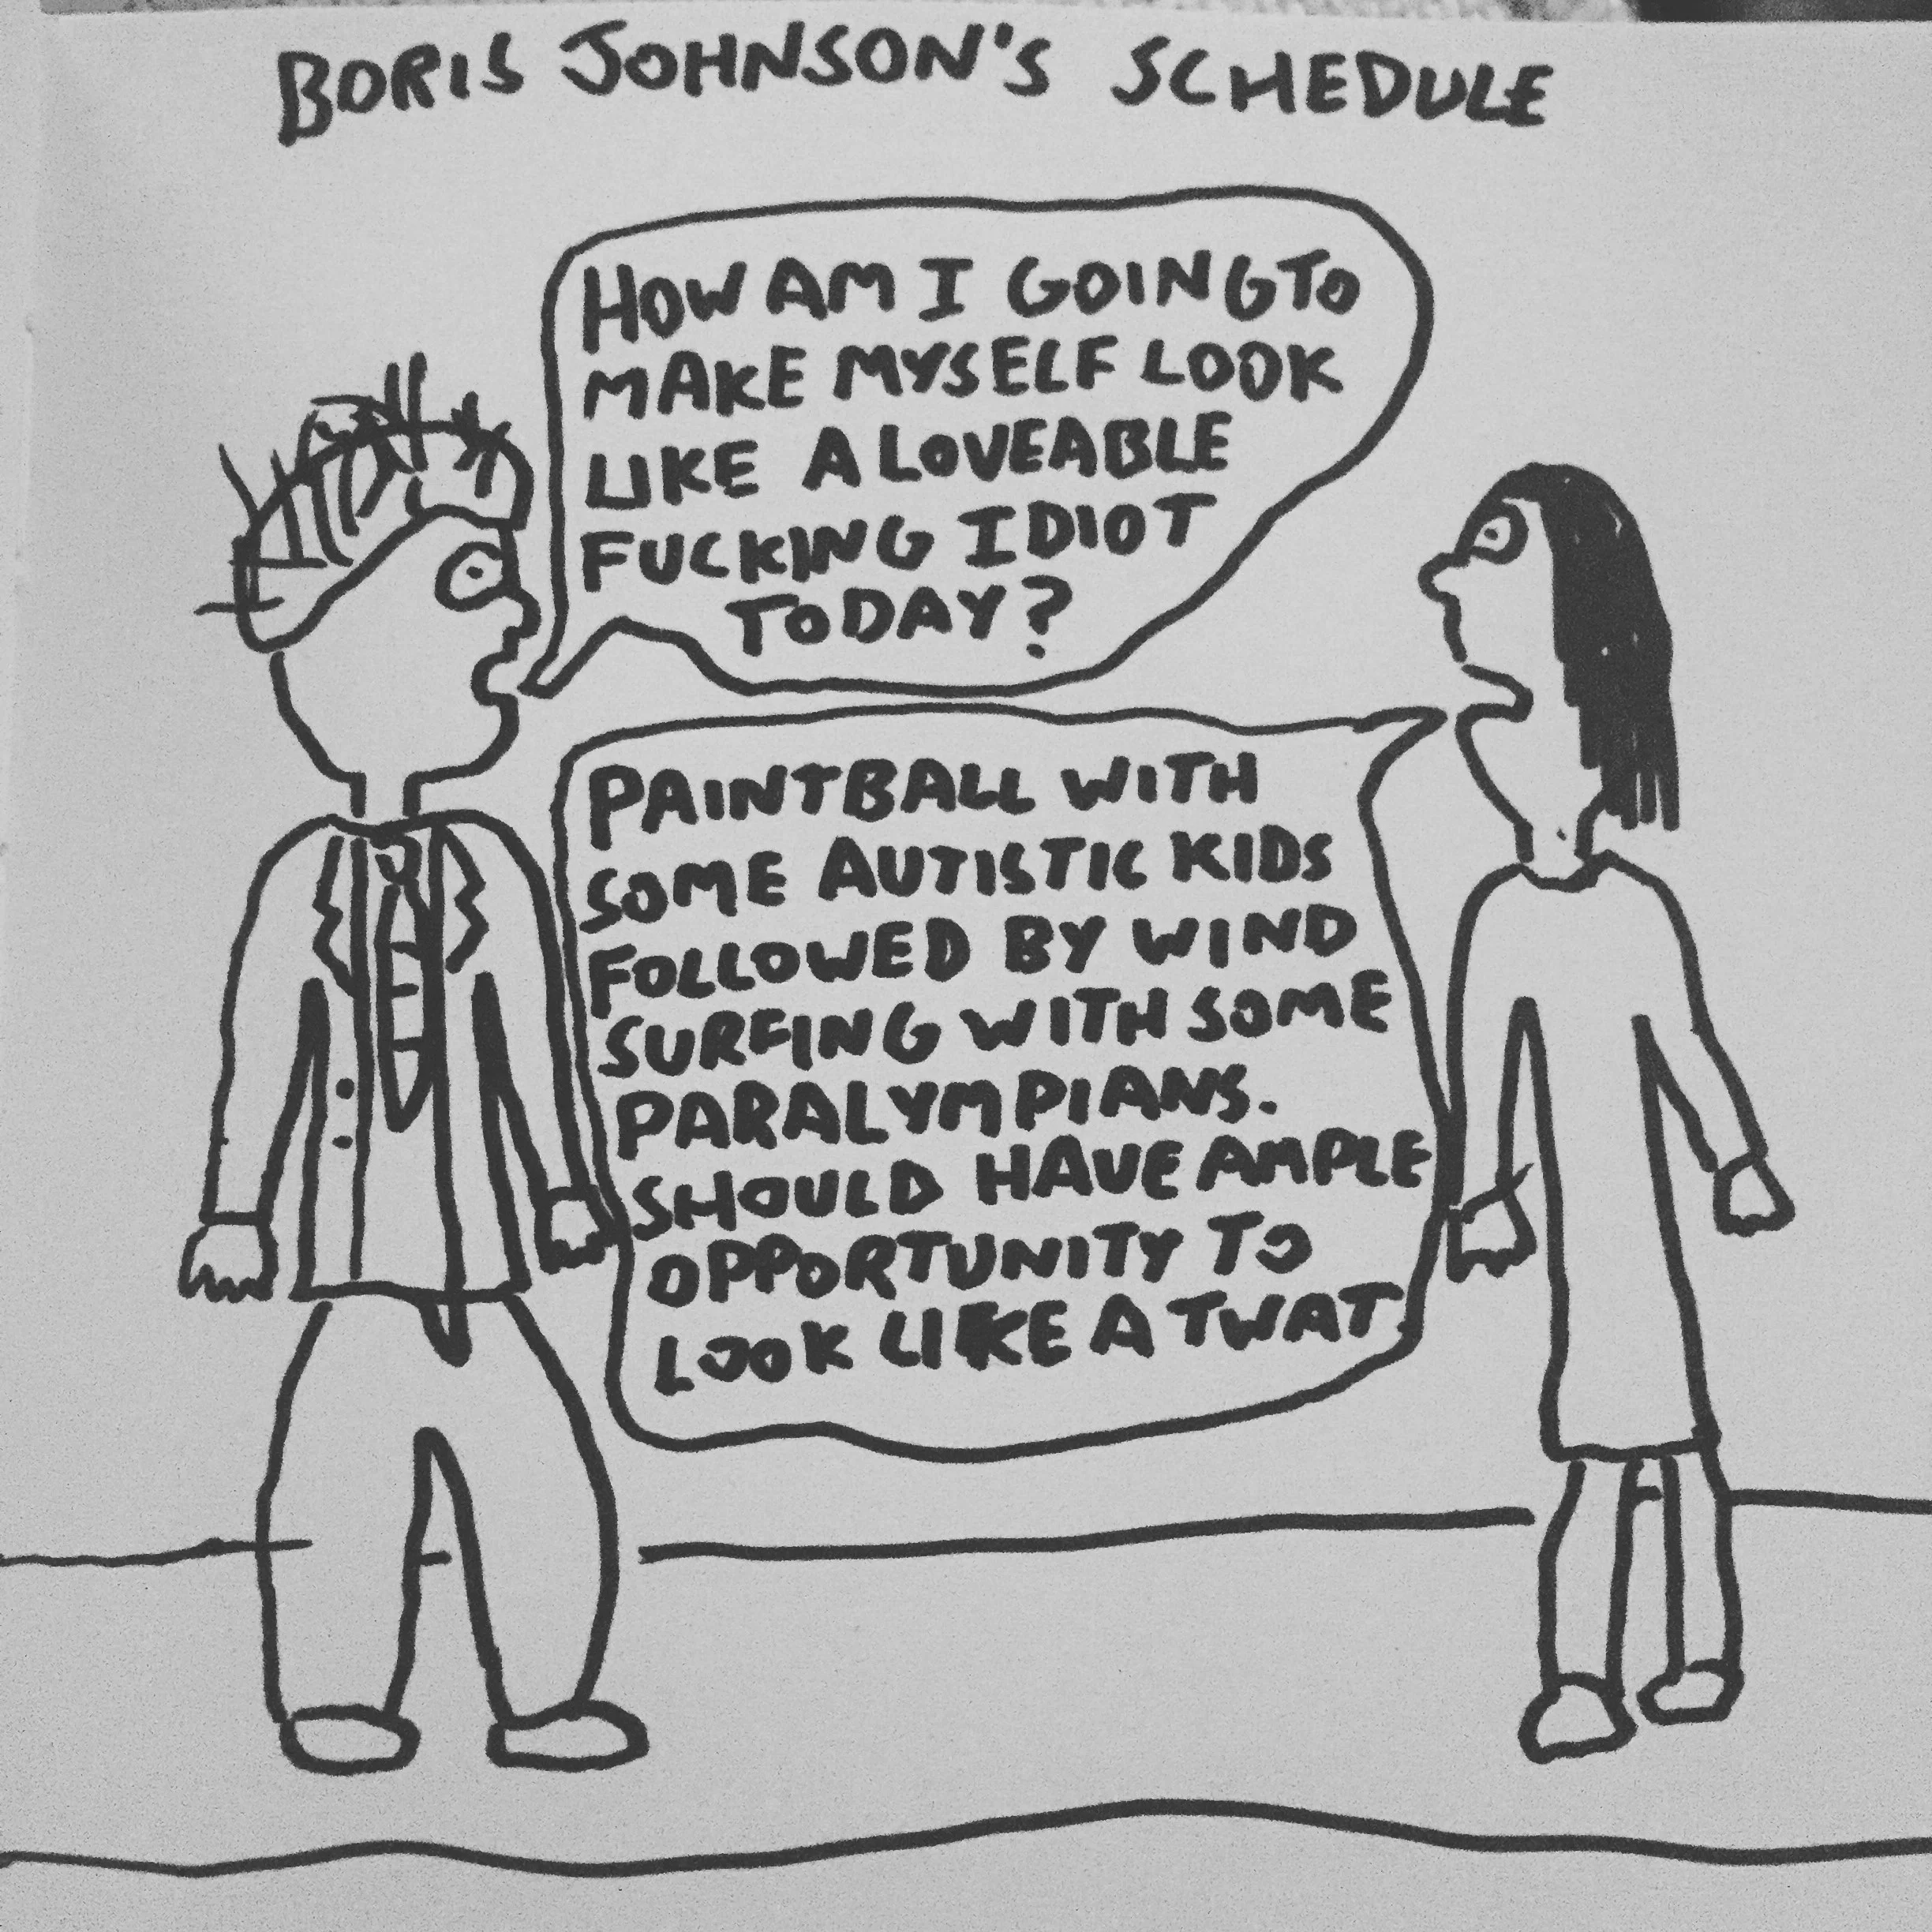 BORIS JOHNSON'S SCHEDULE
HOW AM I GOING TO
MAKE MYSELF LOOK
LIKE A LOVEABLE
FUCKING IDIOT
TODAY?
PAINTBALL WITH
SOME AUTISTIC KIDS
FOLLOWED BY WIND
SURFING WITH SOME
PARALYMPIANS.
SHOULD HAVE AMPLE
OPPORTUNITY TO
LOOK LIKE A TWAT.